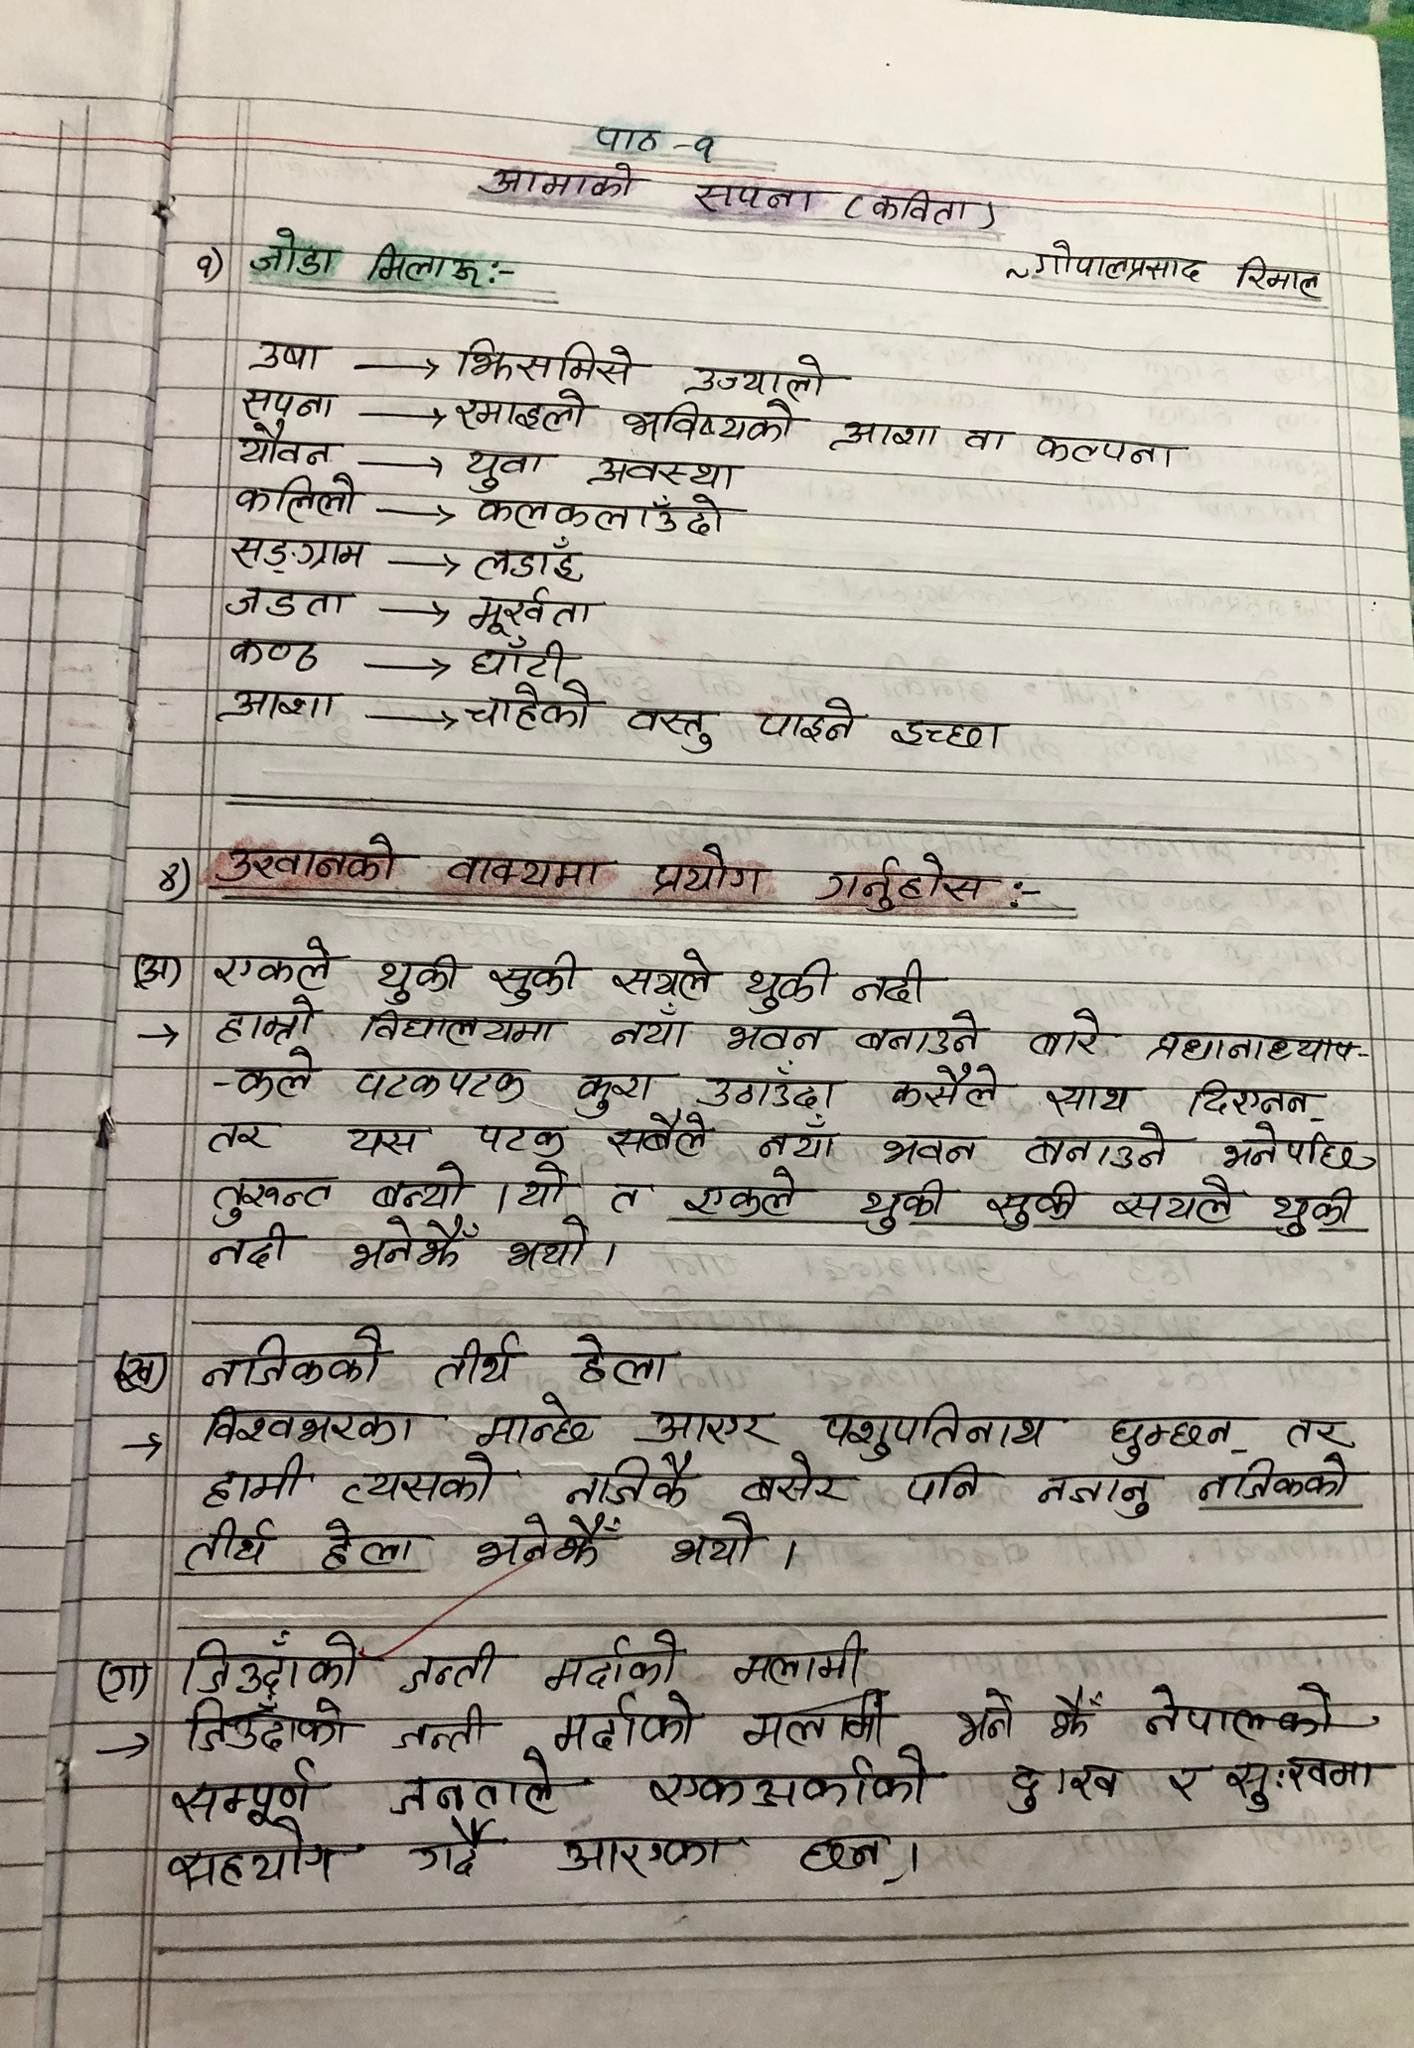 पाठ -१
आमाको सपना (कविता)
१) जोडा मिलाऊ:-
~गोपालप्रसाद रिमाल
उषा → झिसमिसे उज्यालो
सपना → रमाइलो भविष्यको आशा वा कल्पना
यौवन → युवा अवस्था
कलिलो → कलकलाउँदो
सङ्ग्राम → लडाइँ
जडता → मूर्खता
कण्ठ → घाँटी
आशा → चाहेको वस्तु पाइने इच्छा
४) उखानको वाक्यमा प्रयोग गर्नुहोस :-
(अ) एकले थुकी सुकी सयले थुकी नदी
→ हाम्रो विद्यालयमा नयाँ भवन बनाउने बारे प्रधानाध्याप-
-कले पटकपटक कुरा उठाउँदा कसैले साथ दिएनन्
तर यस पटक सबैले नयाँ भवन बनाउने भनेपछि
तुरुन्त बन्यो । यो त एकले थुकी सुकी सयले थुकी
नदी भनेझैँ भयो ।
(ख) नजिकको तीर्थ हेला
→ विश्वभरका मान्छे आएर पशुपतिनाथ घुम्छन् तर
हामी त्यसको नजिकै बसेर पनि नजानु नजिकको
तीर्थ हेला भनेझैँ भयो ।
(ग) जिउँदाको जन्ती मर्दाको मलामी
→ जिउँदाको जन्ती मर्दाको मलामी भने झैँ नेपालको
सम्पूर्ण जनताले एकअर्काको दुःख र सुःखमा
सहयोग गर्दै आएका छन् ।